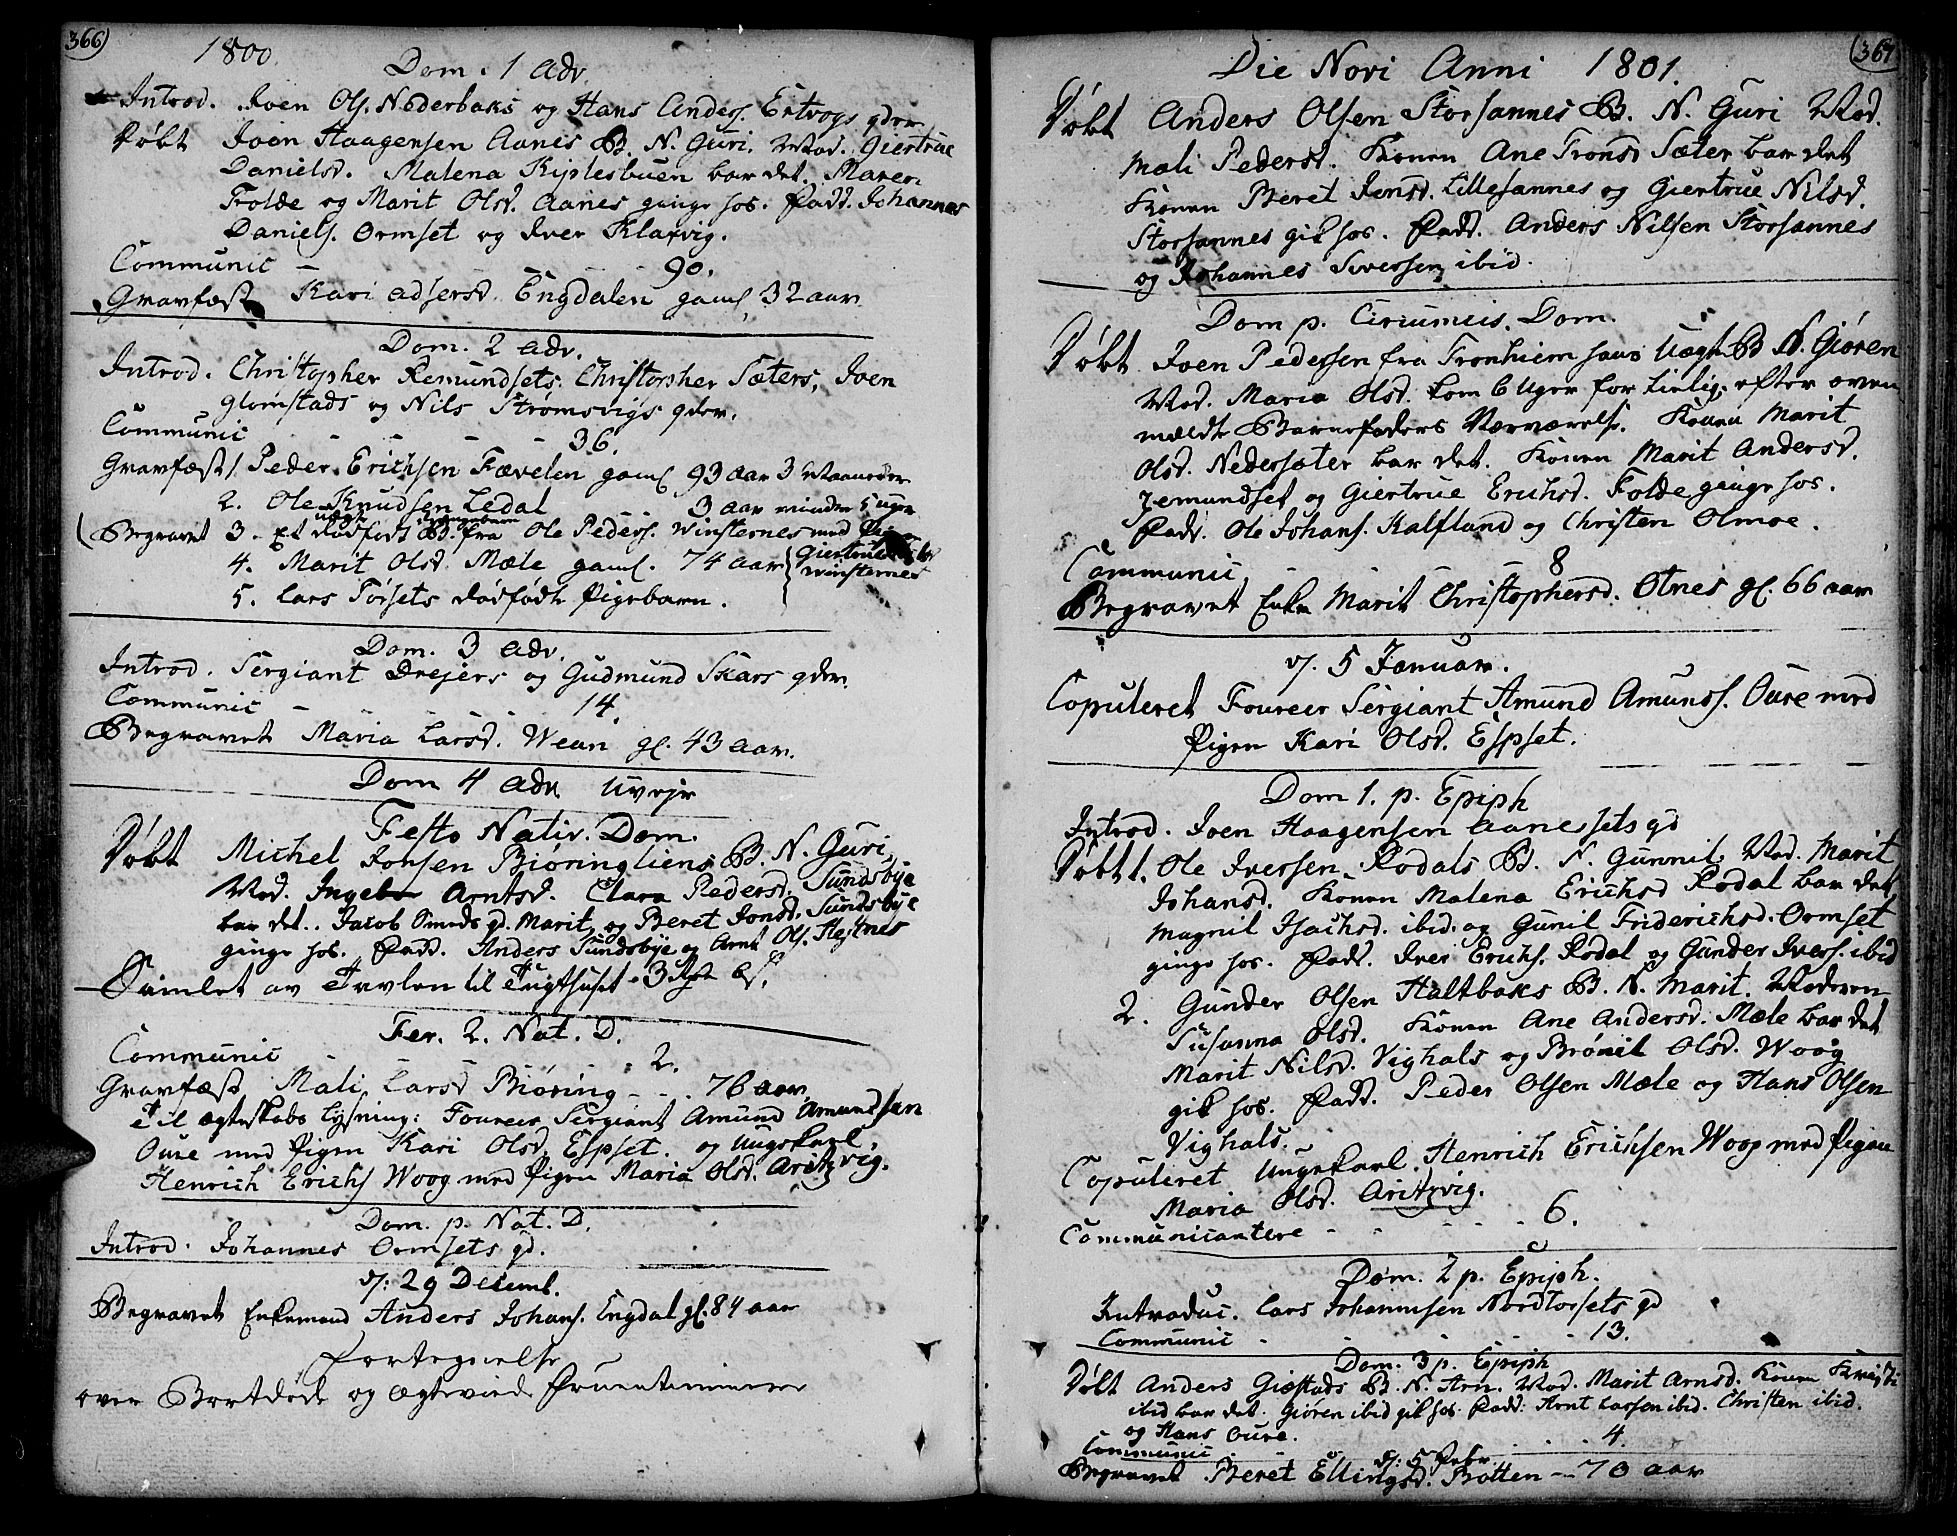 366)
1800.
Dom. 1 Adv.
Introd. Joen Ols. Nederbaks og Hans Anders. Ertvogs qdr.
Døbt Joen Haagensen Aanes B. N. Guri. Mod. Giertrue
Danielsd. Malena Kiplesbuen bar det. Maren
Folde og Marit Olsd. Aanes ginge hos. Fadd. Johannes
Daniels. Ormset og Iver Klaxvig.
Communic - - - 90.
Gravfæst Kari Adsersd. Engdalen gaml. 32 aar
Dom. 2 Adv.
Introd. Christopher Remundsets, Christopher Sæters, Joen
Glomstads og Nils Strømsvigs qdr.
Communic - - - - 36.
Gravfæst 1. Peder Erichsen Fævelen gaml 93 aar 3 Maaneder
2. Ole Knudsen Ledal 3 aar minder 5 uger
Begravet 3. Et uægte dødfødt B. fra Ole Peders. Winsternes med
4. Marit Olsd. Mæle gaml. 74 aar Giertrue Winsternes
5. Lars Torsets dødfødte Pigebarn.
Dom. 3 Adv.
Introd. Sergiant Drejers og Gudmund Skars qdr.
Communic - - - - 14.
Begravet Maria Larsd. Wean gl. 43 aar.
Dom 4 Adv. Uvejr
Festo Nativ. Dom.
Døbt Michel Jonsen Biøringliens B. N. Guri,
Mod. Ingebor Arntsd. Clara Pedersd. Sundsbye
bar det. Jacob Smeds qd. Marit og Beret Jonsd. Sundsbye
ginge hos. Fadd. Anders Sundsbye og Arnt Ols.
Samlet av Tavlen til Tugthuset 3
Fer. 2. Nat. D.
Communic - - - 2.
Gravfæst Mali Larsd Biøring - - 76 aar.
Til Ægteskabs Lysning: Foureer Sergiant Amund Amundsen
Oure med Pigen Kari Olsd. Espset. og Ungekarl
Henrich Erichs Woog med Pigen Maria Olsd. Aritzvig.
Dom. p. Nat. D.
Introd. Johannes Ormsets qd.
d. 29 Decemb.
Begravet Enkemand Anders Johans. Engdal gl. 84 aar
Fortegnelse
over Bortdøde og Ægteviede Fruentimmere
(367
Die Novi Anni 1801.
Døbt Anders Olsen Storsannes B. N. Guri Mod.
Mali Pedersd. Konen Ane Tronsd Sæter bar det
Konen Beret Jensd. Lillesannes og Giertrue Nilsd.
Storsannes gik hos. Fadd. Anders Nilsen Storsannes
og Johannes Siversen ibid.
Dom p. Circumcis. Dom.
Døbt Joen Pedersen fra Tronhiem hans Uægte B N. Giøren
Mod. Maria Olsd. kom 6 Uger for tilig, efter oven
meldte Barnefaders Nærværelse. Konen Marit
Olsd. Nedersæter bar det. Konen Marit Andersd.
Remundset og Giertrue Erichsd. Folde ginge hos.
Fadd. Ole Johans. Kalfland og Christen Olmoe.
Communic - - - 8
Begravet Enke Marit Christophersd. Otnes gl. 66 aar
d. 5 Januar.
Copuleret Foureer Sergiant Amund Amunds. Oure med
Pigen Kari Olsd. Espset.
Dom 1. p. Epiph
Introd. Joen Haagensen Aanessets qd
Døbt 1. Ole Iversen Rodals B. N. Gunnil, Mod. Marit
Johansd. Konen Malena Erichsd Rodal bar det
Magnil Isachsd. ibid. og Gunil Friderichsd. Ormset
ginge hos. Fadd. Iver Erichs. Rodal og Gunder Ivers. ibid
2. Gunder Olsen Haltbaks B. N. Marit. Moderen
Susanna Olsd. Konen Ane Andersd. Mæle bar det
Marit Nilsd. Vighals og Brønil Olsd. Woog
gik hos. Fadd. Peder Olsen Mæle og Hans Olsen
Vighals.
Copuleret Ungekarl. Henrich Erichsen Woog med Pigen
Maria Olsd. Aritzvig.
Communicantere - - - - 6.
Dom. 2 p. Epiph.
Introduc. Lars Johannesen Nordtorsets qd
Communic - - - - 13.
Dom. 3 p. Epiph
Døbt Anders Giøstads B. N. Arn. Mod. Marit Arnsd. Konen
ibid bar det. Giøren ibid gik hos. Fadd: Arnt Larsen ibid. Christen ibid.
og Hans Oure.
Communic - - - 4.
d. 5 Febr
Begravet Beret Ellingsd. Botten - 70 aar